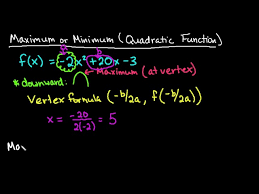 Maximum or Minimum (Quadratic Function)
a b
f(x) = -2x² +20x -3
Maximum (at vertex)
* downward:
Vertex formula (-b/2a, f(-b/2a))
x = -20/2(-2) = 5
Ma